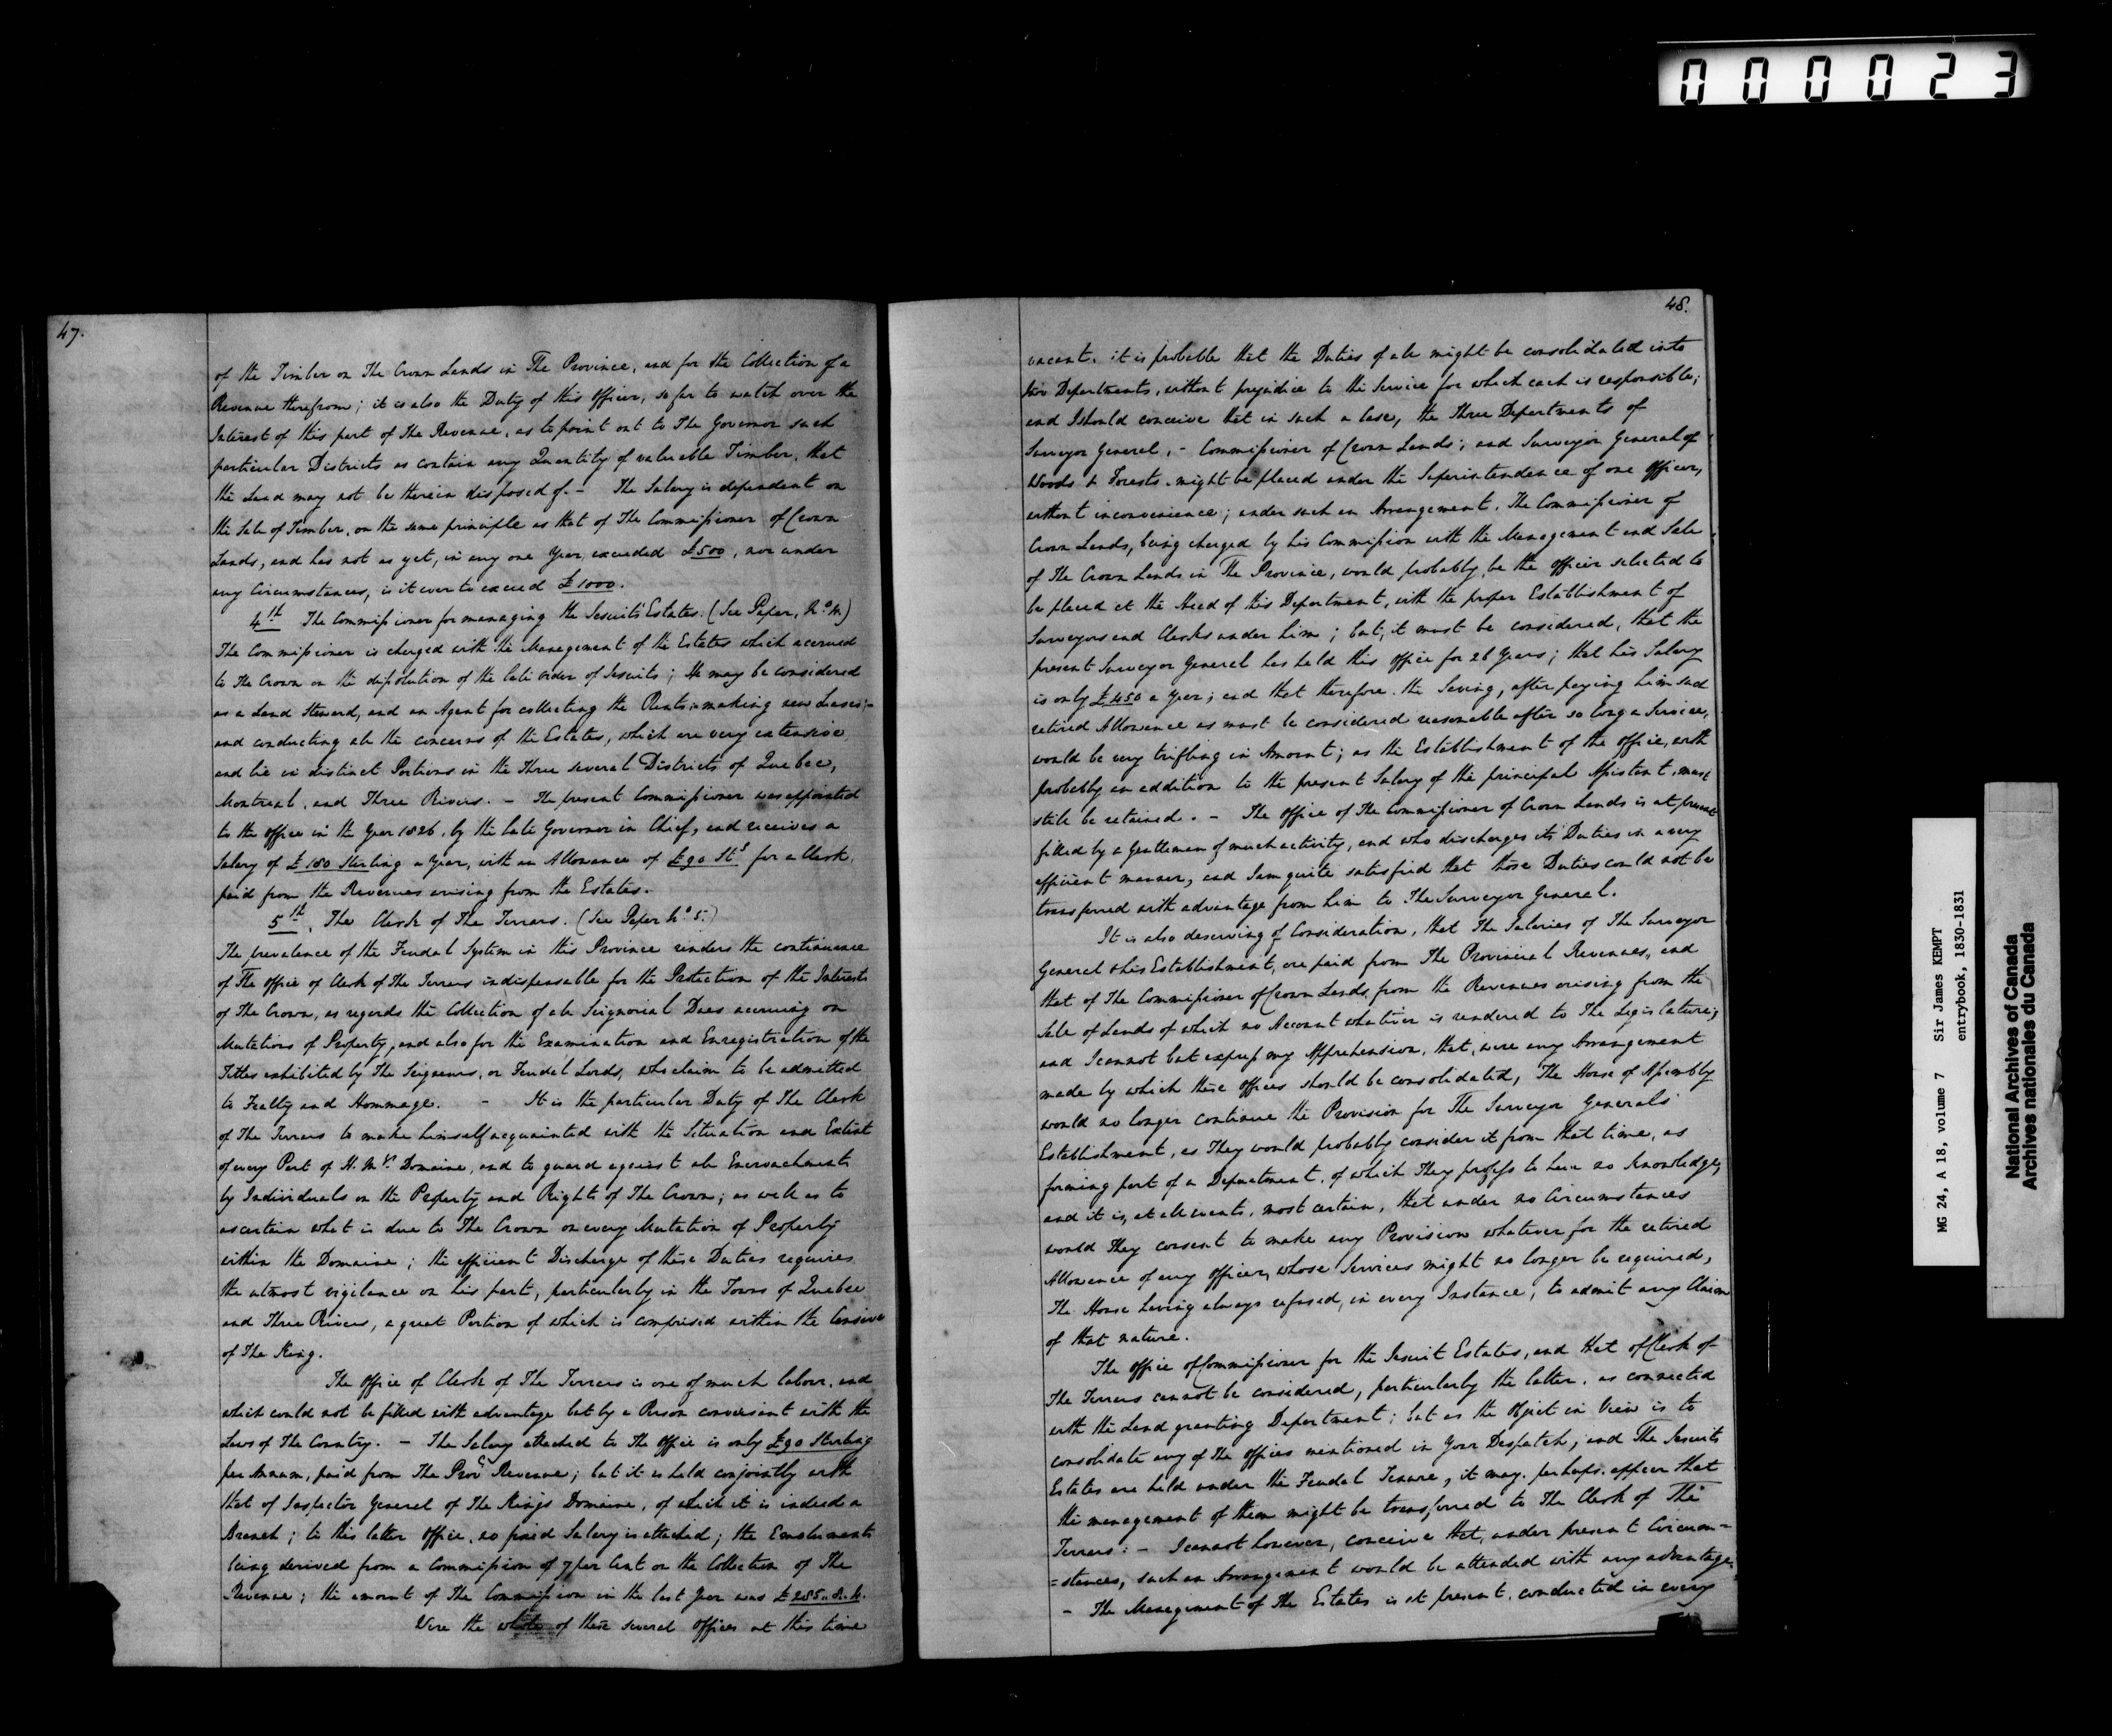 000023
47.
of the Timber on The Crown Lands in The Province, and for the Collection of a
Revenue therefrom; it is also the Duty of this Officer, so far to watch over the
Interest of this part of The Revenue, as to point out to The Governor such
particular Districts as contain any Quantity of valuable Timber, that
the Land may not be therein disposed of. - The Salary is dependent on
the Sale of Timber, on the same principle as that of The Commissioner of Crown
Lands, and has not as yet, in any one Year, exceeded £500, nor under
any Circumstances, is it ever to exceed £1000.
4th The Commissioner for managing the Jesuits' Estates. (See Paper, No 4)
The Commissioner is charged with the Management of the Estates which accrued
to The Crown on the dissolution of the late order of Jesuits; He may be considered
as a Land Steward, and an Agent for collecting the Rents; making new Leases;-
and conducting all the concerns of the Estates, which are very extensive,
and lie in distinct Portions in the Three several Districts of Quebec,
Montreal, and Three Rivers. - The present Commissioner was appointed
to the office in the Year 1826, by the late Governor in Chief, and receives a
Salary of £180 Sterling a Year, with an Allowance of £90 Stg for a Clerk,
paid from the Revenues arising from the Estates.
5th. The Clerk of The Terrars. (See Paper No 5.)
The prevalence of the Feudal System in this Province renders the continuance
of The office of Clerk of The Terrars indispensable for the Protection of the Interests
of The Crown, as regards the Collection of all Seignorial Dues accruing on
Mutations of Property, and also for the Examination and Enregistration of the
Titles exhibited by The Seigneurs, or Feudal Lords, who claim to be admitted
to Fealty and Hommage. - It is the particular Duty of The Clerk
of The Terrars to make himself acquainted with the Situation and Extent
of every Part of H. My. Domaine, and to guard against all Encroachments
by Individuals on the Property and Rights of The Crown; as well as to
ascertain what is due to The Crown on every Mutation of Property
within the Domaine; the efficient Discharge of these Duties requires
the utmost vigilance on his part, particularly in the Towns of Quebec
and Three Rivers, a great Portion of which is comprised within the Censive
of The King.
The Office of Clerk of The Terrars is one of much labour, and
which could not be filled with advantage but by a Person conversant with the
Laws of The Country. - The Salary attached to The Office is only £90 Sterling
per Annum, paid from The Provl Revenue; but it is held conjointly with
that of Inspector General of The King's Domaine, of which it is indeed a
Branch; to this latter office, no fixed Salary is attached; the Emoluments
being derived from a Commission of 7 per Cent on the Collection of The
Revenue; the amount of The Commission in the last Year was £285..8..4.
Were the whole of these several Offices at this time
48.
vacant, it is probable that the Duties of all might be consolidated into
two Departments, without prejudice to the Service for which each is responsible;
and I should conceive that in such a Case, the Three Departments of
Surveyor General, - Commissioner of Crown Lands; and Surveyor General of
Woods & Forests, might be placed under the Superintendence of one officer,
without inconvenience; under such an Arrangement, The Commissioner of
Crown Lands, being charged by his Commission with the Management and Sale
of The Crown Lands in The Province, would probably, be the officer selected to
be placed at the Head of this Department, with the proper Establishment of
Surveyors and Clerks under him; but, it must be considered, that the
present Surveyor General has held this office for 26 Years; that his Salary
is only £450 a Year; and that therefore, the Saving, after paying him such
retired Allowance as must be considered reasonable after so long a Service,
would be very trifling in Amount; as the Establishment of the office, with
probably an addition to the present Salary of the principal Assistant, must
still be retained. - The office of The Commissioner of Crown Lands is at present
filled by a Gentleman of much activity, and who discharges its Duties in a very
efficient manner, and I am quite satisfied that those Duties could not be
transferred with advantage from him to The Surveyor General.
It is also deserving of Consideration, that The Salaries of The Surveyor
General & his Establishment, are paid from The Provincial Revenues, and
that of The Commissioner of Crown Lands from the Revenues arising from the
Sale of Lands of which no Account whatever is rendered to The Legislature;
and I cannot but express my Apprehension, that, were any Arrangement
made by which these offices should be consolidated, The House of Assembly
would no longer continue the Provision for The Surveyor General's
Establishment, as They would probably consider it from that time, as
forming part of a Department, of which They profess to have no Knowledge,
and it is, at all events, most certain, that under no Circumstances
would They consent to make any Provision whatever for the retired
Allowance of any officer, whose Services might no longer be required,
The House having always refused, in every Instance, to admit any Claim
of that nature.
The office of Commissioner for the Jesuit Estates, and that of Clerk of
The Terrars cannot be considered, particularly the latter, as connected
with the Land granting Department; but as the Object in View is to
consolidate any of the offices mentioned in Your Despatch, and The Jesuits
Estates are held under the Feudal Tenure, it may, perhaps, appear that
the management of them might be transferred to The Clerk of The
Terrars: - I cannot however, conceive that, under present Circum=
=stances, such an Arrangement would be attended with any advantage.
- The Management of The Estates is at present, conducted in every
MG 24, A 18, volume 7 Sir James KEMPT
entrybook, 1830-1831
National Archives of Canada
Archives nationales du Canada